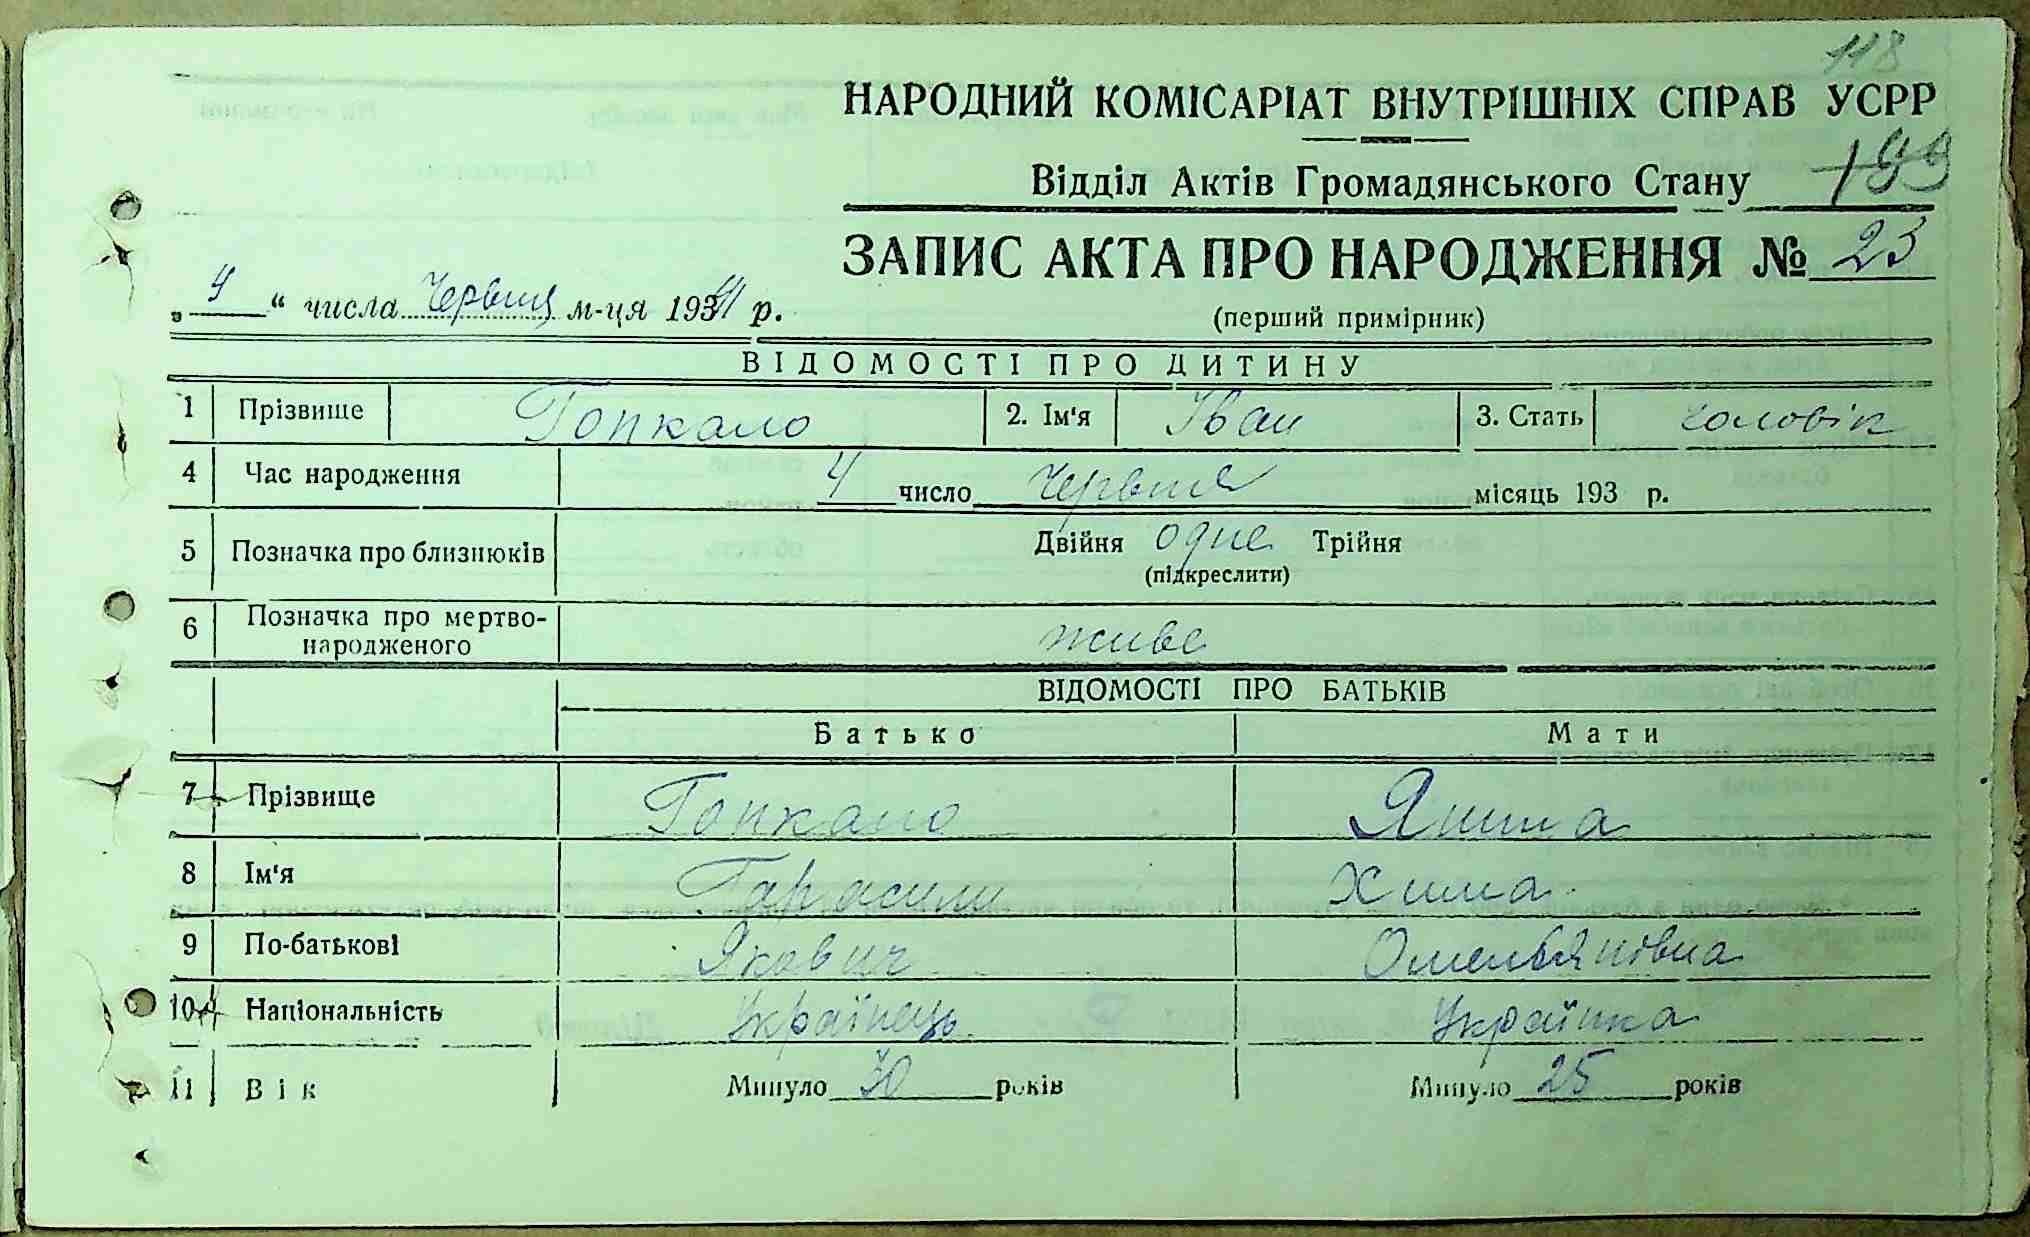 118
НАРОДНИЙ КОМІСАРІАТ ВНУТРІШНІХ СПРАВ УСРР
Відділ Актів Громадянського Стану 199
ЗАПИС АКТА ПРО НАРОДЖЕННЯ № 23
„ 4 “ числа Червця м-ця 1934 р.
(перший примірник)
ВІДОМОСТІ ПРО ДИТИНУ
1 Прізвище Гопкало 2. Ім'я Іван 3. Стать чоловік
4 Час народження 4 число Червця місяць 193 р.
5 Позначка про близнюків Двійня одне Трійня
(підкреслити)
6 Позначка про мертво-
народженого живе
ВІДОМОСТІ ПРО БАТЬКІВ
Батько Мати
7 Прізвище Гопкало
8 Ім'я Гарасим Хима
9 По-батькові Якович Омельяновна
10 Національність Українець Українка
11 Вік Минуло 30 років Минуло 25 років